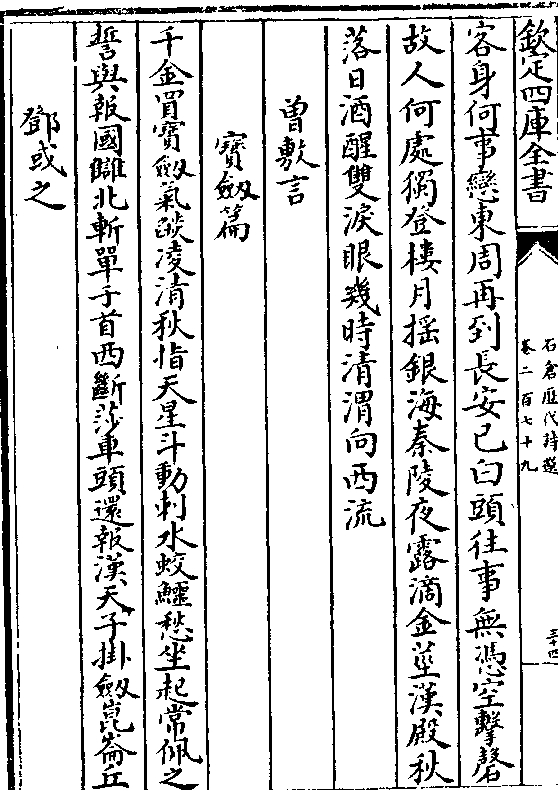 欽定四庫全書
石倉歷代詩選
卷二百七十九
三十四
客身何事戀東周再到長安已白頭往事無憑空擊磬
故人何處獨登樓月揺銀海秦陵夜露滴金莖漢殿秋
落日酒醒雙淚眼幾時清渭向西流
曽敷言
寳劒篇
千金買寳劒氣燄凌清秋指天星斗動刺水蛟鱷愁坐起常佩之
誓與報國讎北斬單于首西斷莎車頭還報漢天子掛劒崑崙丘
鄧或之